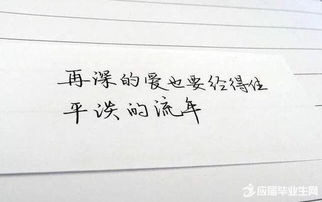 再深的爱也要经得住
平淡的流年
应届毕业生网